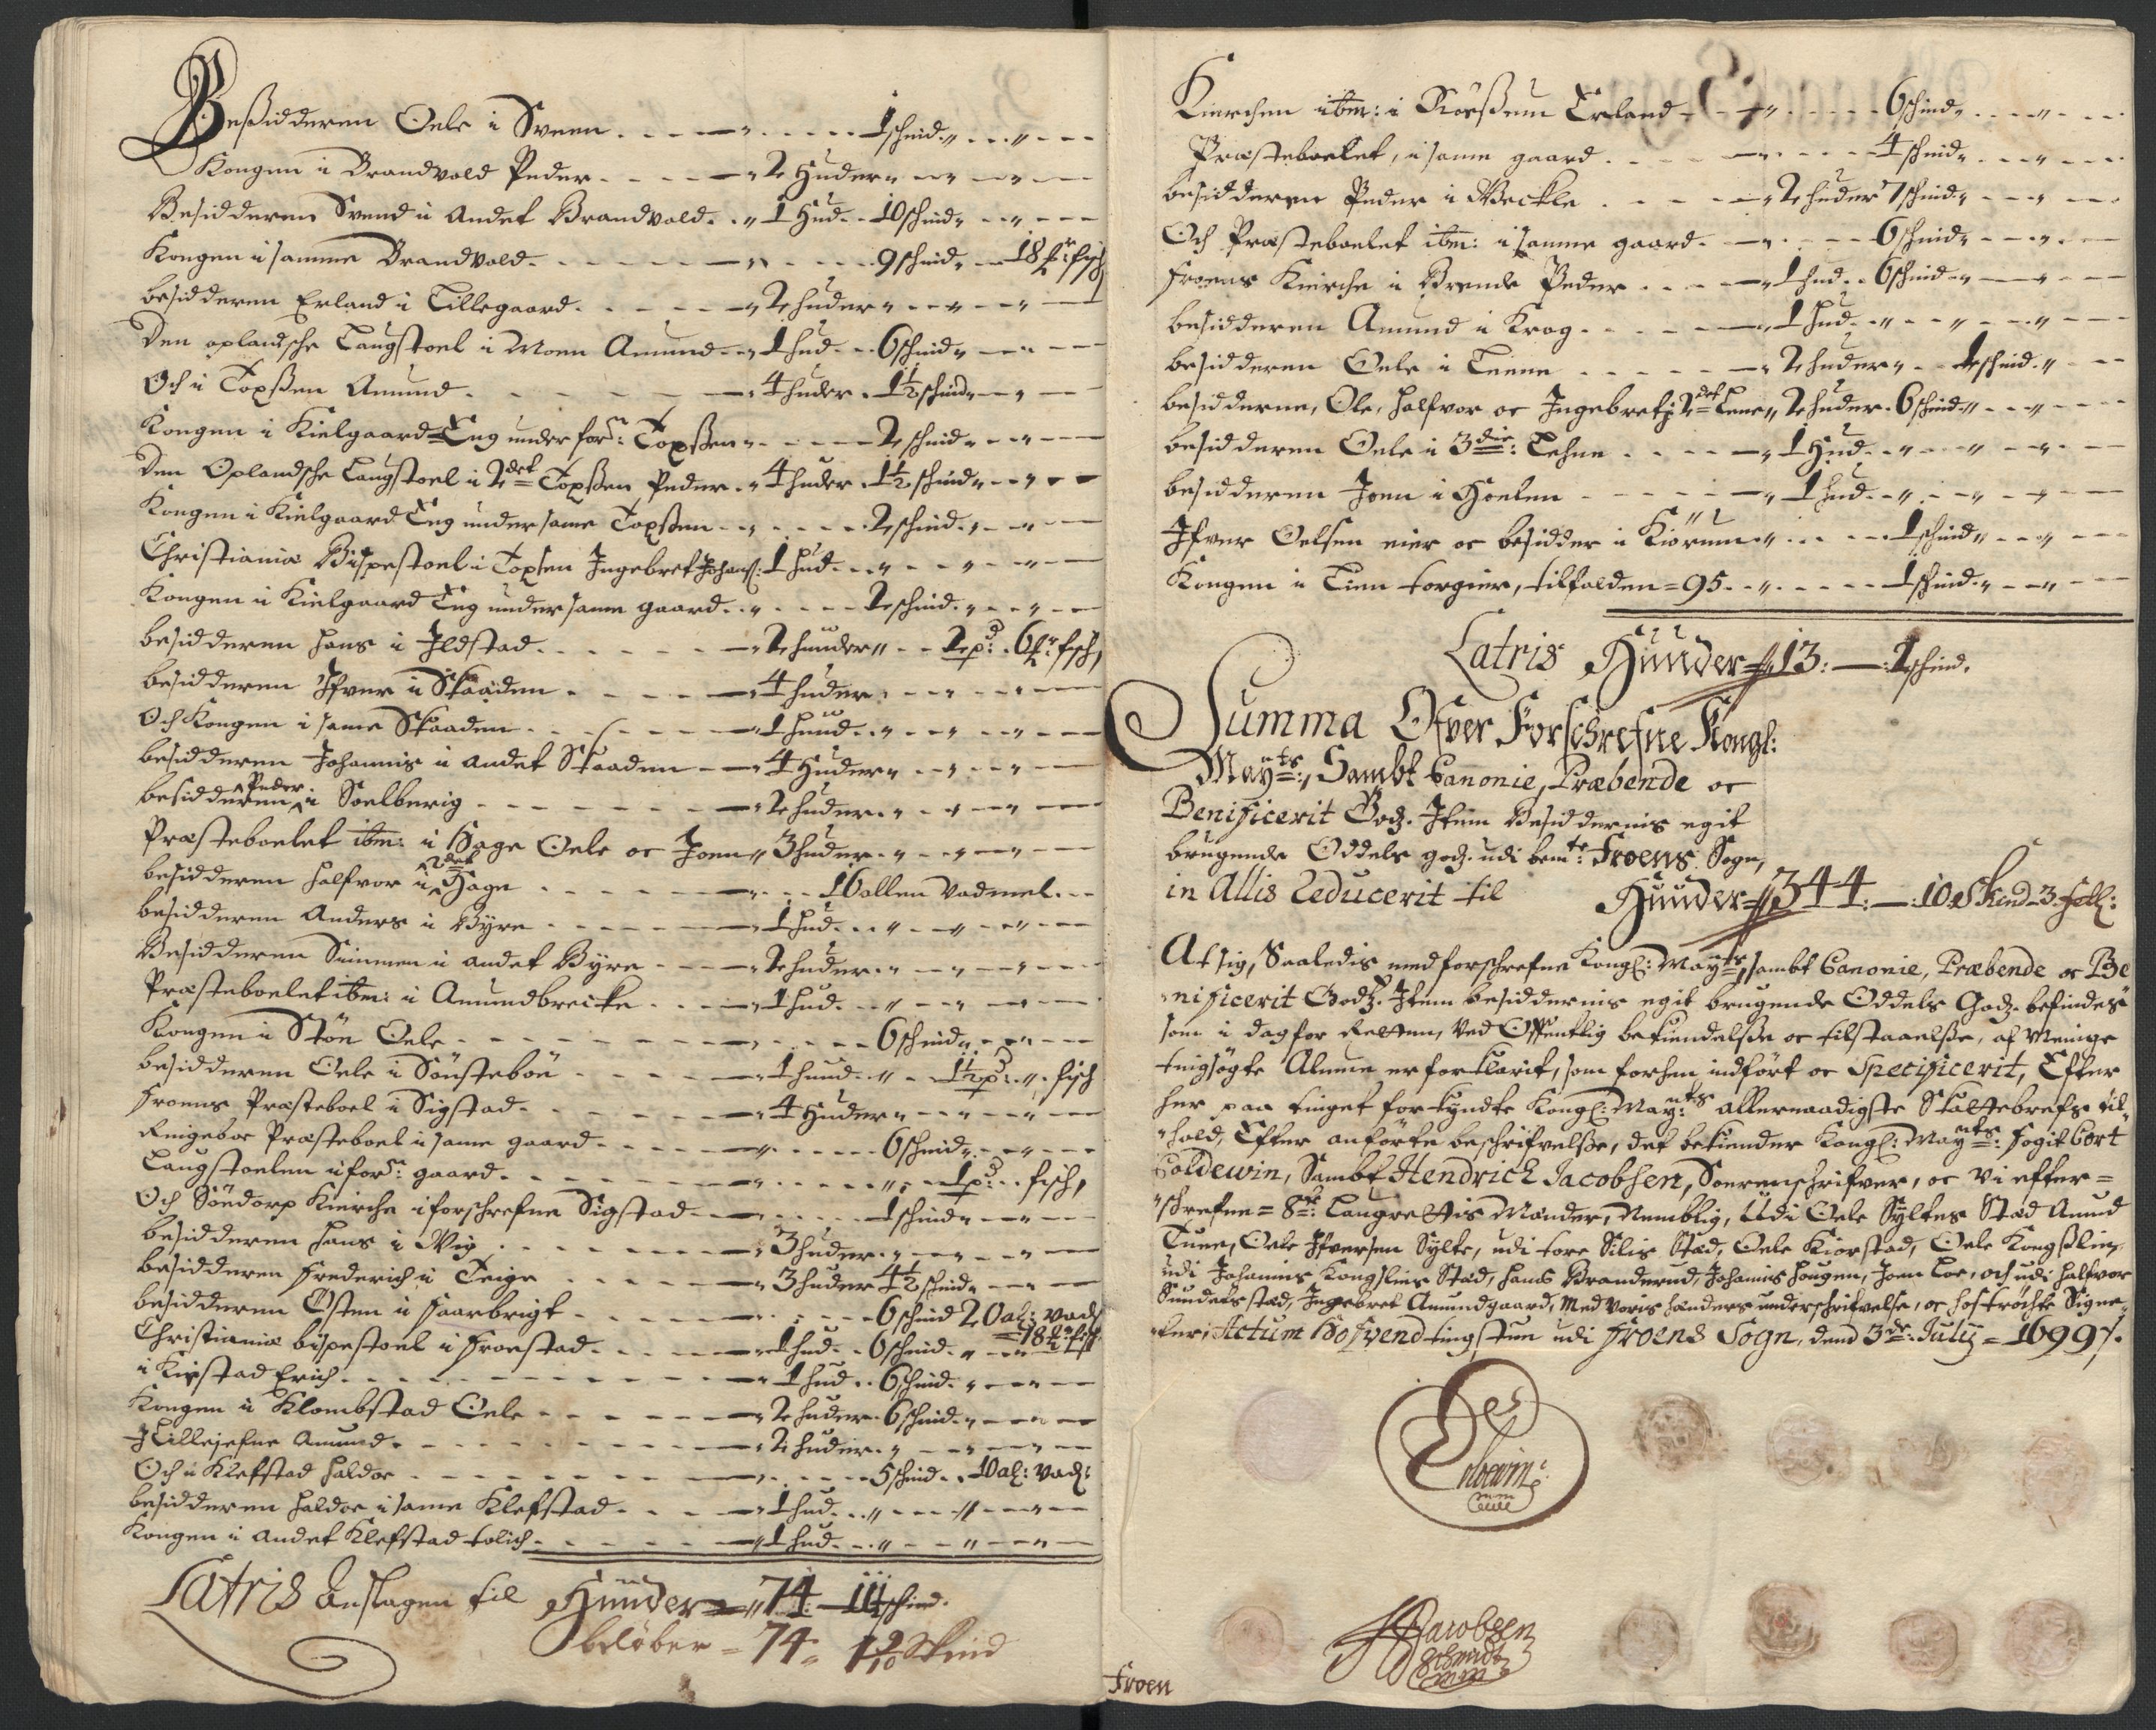 Beßidderen Oele i Sveen - - - " - - - 1 schind " - - " - -
Kongen i Brandvold Peder - - - " 2 Huder " - " - " -
Besidderen Svend i andet Brandvold - " 1 Hud - 10 schind " - " - -
Kongen i samme Brandvold - - - " - - 9 schind " - 18 fisch
besidderen Erland i Lillegaard - - - " 2 huder " - " - " -
Den oplandsche Laugstoel i Moen Amund - " 1 hud - 6 schind " - " -
Och i Toxßen Amund - - - " 4 huder - 1½ schind " - " -
Kongen i Kielgaard Eng under for: Toxßen " - - - 2 schind " - " -
Den Oplandsche Laugstoel i 2det Toxßen Peder - " 4 huder 1½ schind " - " -
Kongen i Kielgaard Eng under same Toxßen - " - - 2 schind " - " -
Christianiæ Bispestoel i Toxsen Ingebret Johanß: 1 hud - " - " - " -
Kongen i Kielgaard Eng under same gaard - " - - 2 schind " - " -
besidderen Hans i Ildstad - - - " 2 huuder " - 2 pd: 6 fisch,
besidderen Ifver i Skaaden - - - " 4 huder - " - " -
Och Kongen i same Skaaden - - - " 1 huud - " - " - " -
besidderen Johannis i andet Skaaden - " 4 Huder " - " - " -
besidderen Peder i Soelberig - - - " 2 huder " - " - " -
Præsteboelet ibm: i Hage Oele oc Joen " 3 huder - " - " - " -
besidderen Halfvor i 2det Hage - - - " - - 16 allen Vadmel - -
besidderen Anders i Byre - - - " 1 hud - " - " - " -
Besidderen Simmen i andet Byre - - " 2 huder - " - " - " -
Præsteboelet ibm: i Amundbrecke - - " 1 hud - " - " - " -
Kongen i Stön Oele - - - " - - 6 schind " - " -
besidderen Oele i Sönsteböe - - - " 1 huud - " - 1½ pd: " fisch
Froens Præsteboel i Sigstad - - - " 4 Huder " - " - " -
Ringeboe Præsteboel i same gaard - - - " - - 6 schind " - " -
Laugstoelen i for: gaard - - - " - - " - 1 pd: - fisch,
Och Söndorp Kierche i forschrefne Sigstad - " - - 1 schind " - " -
besidderen Hans i Vig - - - " 3 huder - " - " - " -
besidderen Frederich i Teige - - - " 3 huder 4½ schind " - " -
besidderen Østen i Faarbrigt - - - " - - 6 schind 20 al: vad:
Christianiæ bispestoel i Froestad - - - " 1 hud - 6 schind - " - 18 fisch
i Kirstad Erich - - - " 1 hud - 6 schind - " - " -
Kongen i Klombstad Oele - - - " 2 huder - 6 schind " - " -
I Lillejefne Amund - - - " 2 huder - " - " - " -
Och i Klefstad Haldor - - - " - - 5 schind - 10 al: vad:
besidderen Haldor i same Klefstad - - " 1 hud - " - " - " -
Kongen i andet Klefstad tolich - - - " 1 hud - " - " - " -
Latris Anslagen til Hunder = " 74 - schind.
belöber = 74 " 1 9/10 Skind
Kierchen ibm: i Rörßum Erland - - " - - 6 schind " - " -
Præsteboelet, i same gaard - - - " - - 4 schind " - " -
besidderen Peder i Veckle - - - " 2 huder 7 schind " - " -
Och Præsteboelet ibm: i samme gaard - " - - 6 schind " - " -
Froens Kierche i Brende Peder - - " 1 hud - 6 schind - " - " -
besidderen Amund i Krog - - - " 1 hud - " - " - " -
besidderen Oele i Leene - - - " 2 huder " - 1 schind "
besidderne, Ole, Halfvor oc Ingebret i 2det Lene " 2 huder - 6 schind " - " -
besidderen Oele i 3die: Lehne - - - " 1 Hud - " - " - " -
besidderen Joen i Hoelen - - - " 1 hud - " - " - " -
Ifver Oelsen eier oc besidder i Kiörum " - - 1 schind " - " -
Kongen i Lien torgier, tilfalden = 95 - " - - 1 schind - " - " -
Latris Hunder = " 13: - 1 schind.
Summa Ofver Forschrefne Kongl:
Mayts: Sambt Canonie, Præbende oc
Benificerit Godz. Item Besiddernis egit
brugende Oddels godz. udi bemte: Froens Sogn,
in Allis Leducerit til Huuder = " 344: - 10 Skind - 3 fell:
At sig, Saaledis med forschrefne Kongl: Mayts, sambt Canonie, Præbende oc Be
nificerit Godz. Item besiddernis egit brugende Oddels Godz. befindes
som i dag for Retten, ved Offentlig bekiendelsße oc tilstaaelße, af Menige
tingsögte Almue er forklarit, som forhen indfört oc Specificerit, Efter
her paa tinget forkyndte Kongl: Mayts allernaadigste Skattebrefs til
hold, Efter anförte beschrifvelße, det bekiender Kongl: Mayts: Fogit Cort
Coldewin, Sambt Hendrick Jacobsen, Soerenschrifver, oc vi efter=
schrefne = 8te: Laugrettis Mænder, Nemblig, Udi Oele Syltes Stæd Amud
Tune, Oele Ifversen Sylte, udi tore Silis Stæd, Oele Kiorstad, Oele Kongßlin
udi Johannis Kongslins Stæd, Hans Branderud, Johannis Hougen, Joen Loe, och udi Halfvor
Sundets stæd, Ingebret Amundgaard, Med voris hænders underschrifvelse, oc hostrychte Signe=
ter, Actum Hofvend tingstun udi Froens Sogn, dend 3de: Julij = 1699 /.
Coldewin
HJacobsen
Froen